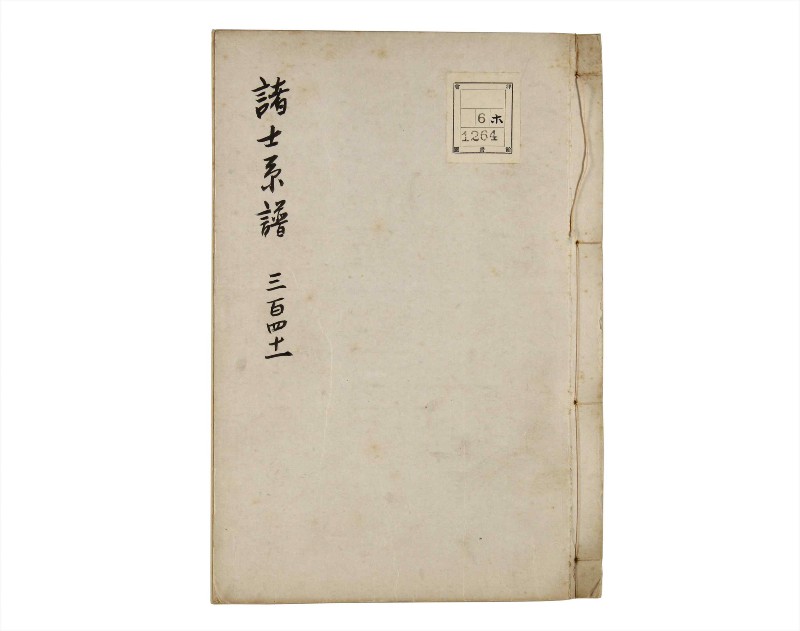 諸士系譜 三百四十一
6 ホ
1264